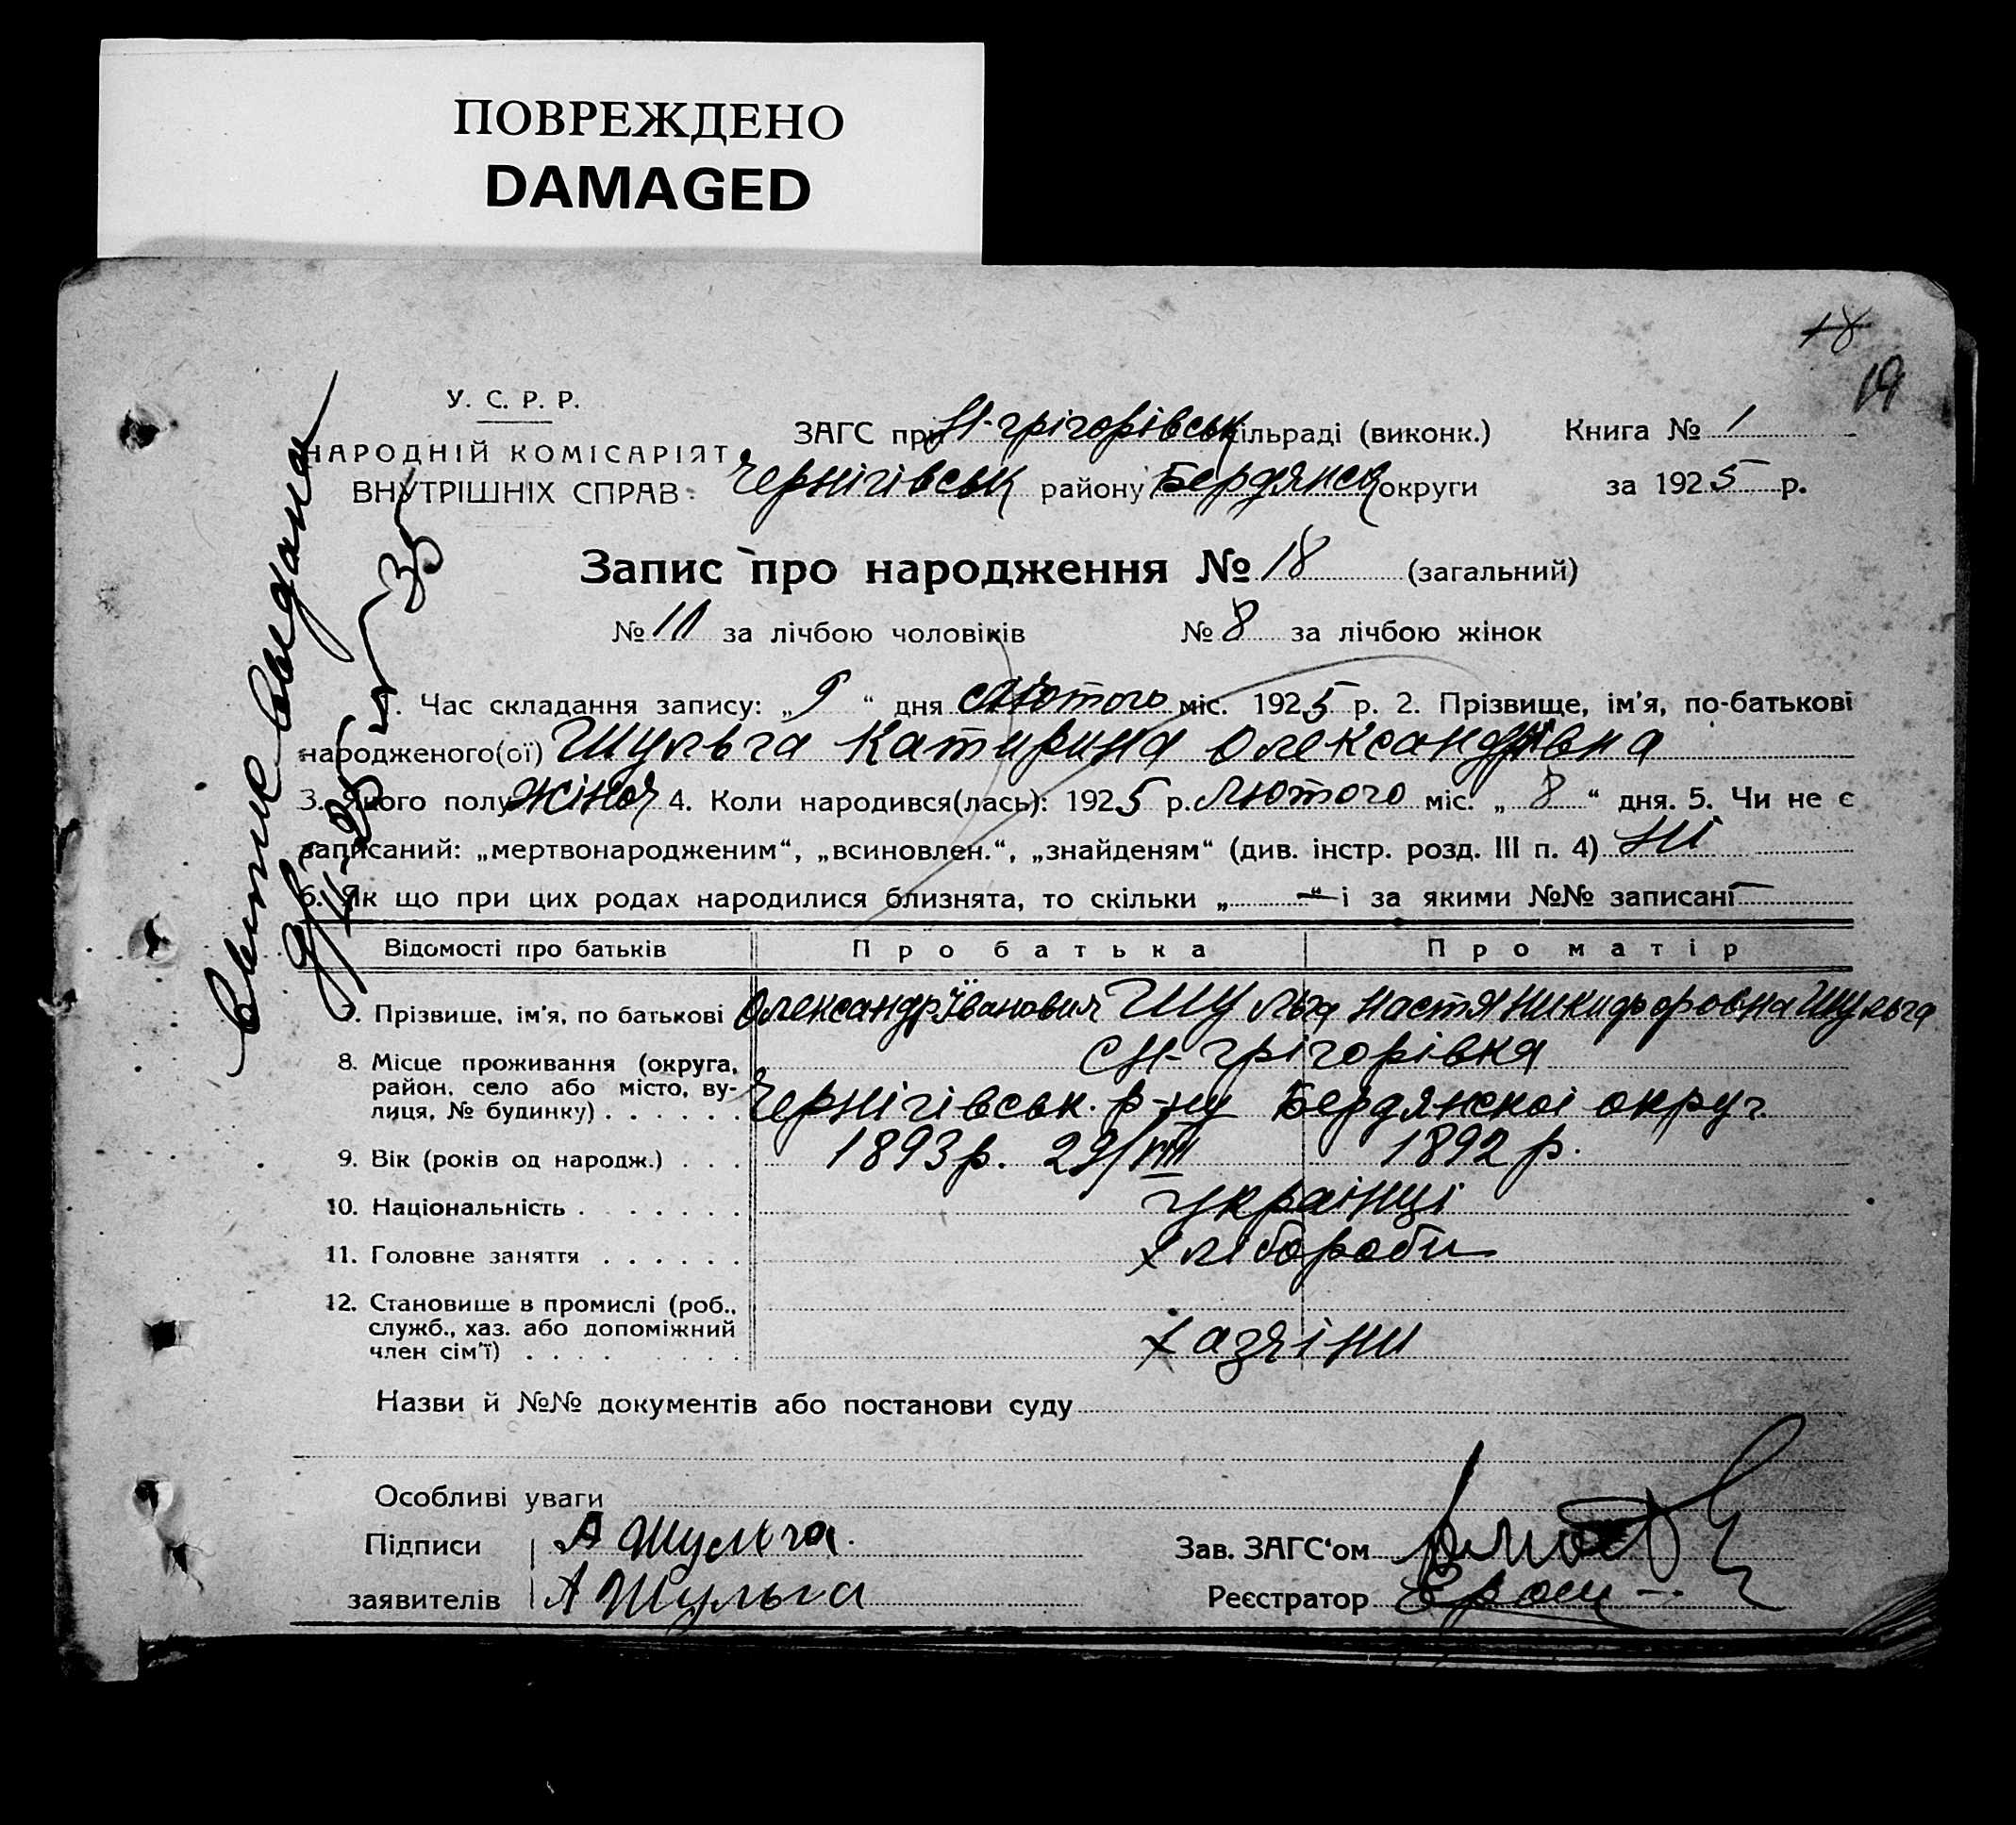 ПОВРЕЖДЕНО
DAMAGED
18
19
У. С. Р. Р.
НАРОДНІЙ КОМІСАРІЯТ
ВНУТРІШНІХ СПРАВ
ЗАГС при Н-грігорівськ сільраді (виконк.)
Чернігівськ району Бердянськ округи
Книга № 1
за 1925 р.
Запис про народження № 18 (загальний)
№ 10 за лічбою чоловіків № 8 за лічбою жінок
1. Час складання запису: „ 9 “ дня лютого міс. 1925 р. 2. Прізвище, ім'я, по-батькові
народженого(ої) Шульга Катирина Олександрівна
3. Якого полу жіноч 4. Коли народився(лась): 1925 р. лютого міс. „ 8 “ дня. 5. Чи не є
записаний: „мертвонародженим“, „всиновлен.“, „знайденям“ (див. інстр. розд. III п. 4) Ні
6. Як що при цих родах народилися близнята, то скільки „ — “ і за якими №№ записані —
Відомості про батьків Про батька Про матір
7. Прізвише, ім'я, по батькові Олександр Іванович Шульга Настя Никифоровна Шульга
8. Місце проживання (округа, район, село або місто, вулиця, № будинку) . . . . . .
с Н-грігорівка
Чернігівськ. р-ну Бердянскоі округ.
9. Вік (років од народж.) . . . 1893 р. 29/VIII 1892 р.
10. Національність . . . . . . . українці
11. Головне заняття . . . . . . хлібороби
12. Становише в промислі (роб., служб., хаз. або допоміжний член сім'ї) . . . . хазяіни
Назви й №№ документів або постанови суду
Особливі уваги
Підписи А Шульга.
заявителів А Шульга
Зав. ЗАГС'ом
Реєстратор
выдана